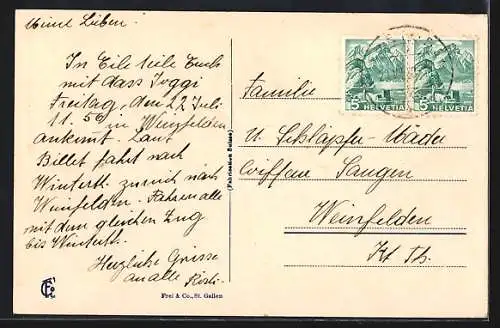 Meine Lieben.
In Eile teile Euch
mit dass Joggi
Freitag, den 22 Juli
11.56 in Weinfelden
ankommt. Laut
Billet fährt nach
Winterth. zurück nach
Weinfelden. Fahren alle
mit dem gleichen Zug
bis Winterth.
Herzliche Grüsse
an alle Rösli.
Frei & Co., St. Gallen
(Fabrication Suisse)
5 HELVETIA 5 HELVETIA
Familie
U. Schläpfer-Wader
Coiffeur Sangen
Weinfelden
Kt Th.